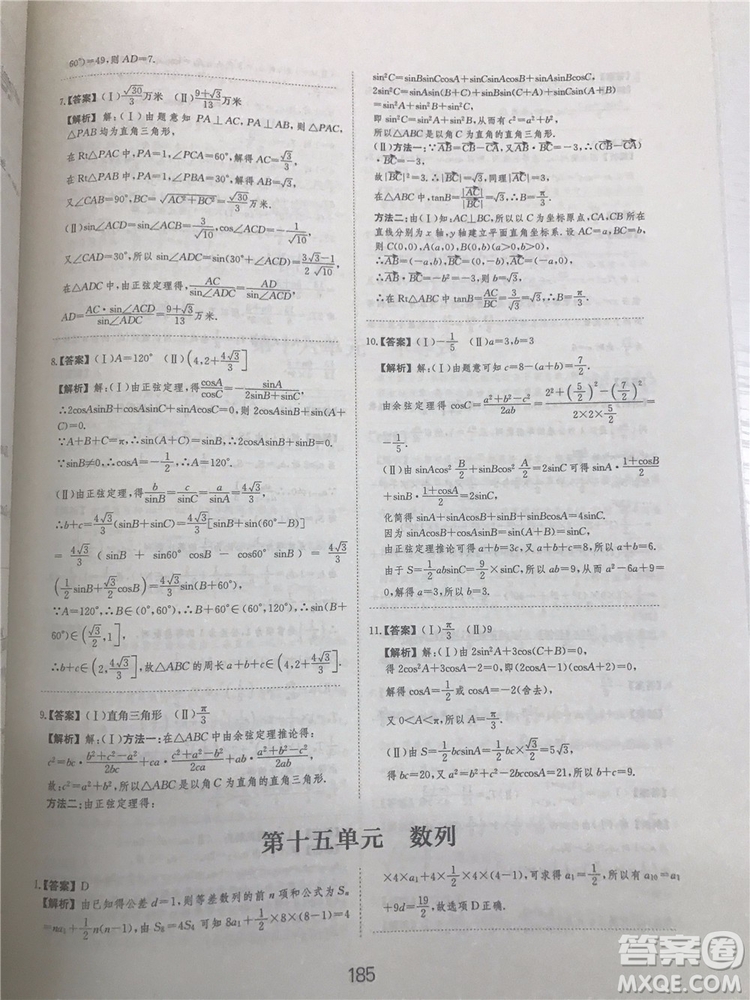 60°)=49,则 AD=7.
7.【答案】(Ⅰ)√30/3 万米 (Ⅱ)(9+√3)/13 万米
【解析】解:(Ⅰ)由题意知 PA⊥AC,PA⊥AB,则△PAC,
△PAB 均为直角三角形.
在 Rt△PAC 中,PA=1,∠PCA=60°,解得 AC=√3/3
在 Rt△PAB 中,PA=1,∠PBA=30°,解得
又∠ACB=90°,BC=√(AC²+BC²)=√30/3 万米.
又∠CAD=30°,所以 sin∠ADC=
在△ADC 中,由正弦定理 AC/sin∠ADC=AD/sin∠ACD,
AD=AC·sin∠ACD/sin∠ADC=(9+√3)/13 万米.
8.【答案】(Ⅰ)A=120° (Ⅱ)(2,2+4√3/3]
【解析】解:(Ⅰ)由正弦定理,得 cosA/cosC=-sinA/(2sinB+sinC)
∴2cosAsinB+cosAsinC+sinAcosC=0,则 2cosAsinB+sinB=0.
∵A+B+C=π,∴sin(A+C)=sinB,∴2cosAsinB+sinB=0.
∵sinB≠0,∴cosA=-1/2,∵A∈(0,π),∴A=120°.
(Ⅱ)由正弦定理得 b/sinB=c/sinC=a/sinA=4√3/3,
∴b+c=4√3/3(sinB+sinC)=4√3/3[sinB+sin(60°-B)]
=4√3/3(sinB+sin60°cosB-cos60°sinB)=4√3/3
(1/2 sinB+√3/2 cosB)=4√3/3 sin(B+60°).
∵A=120°,∴B∈(0°,60°),∴B+60°∈(60°,120°),∴sin(B+
60°)∈(√3/2,1],
∴b+c∈(2,4√3/3],故△ABC 的周长 a+b+c∈
9.【答案】(Ⅰ)直角三角形 (Ⅱ)π/3
【解析】解:(Ⅰ)方法一:在△ABC 中由余弦定理推论得:
c²=bc·(b²+c²-a²)/2bc+ca·(a²+c²-b²)/2ca+ab·(a²+b²-c²)/2ab,
故:c²=a²+b²,所以△ABC 是以角 C 为直角的直角三角形.
方法二:由正弦定理得:
sin²C=sinBsinCcosA+sinCsinAcosB+sinAsinBcosC,
2sin²C=sinAsin(B+C)+sinBsin(C+A)+sinCsin(A+B)
=sin²A+sin²B+sin²C,
即 sin²C=sin²A+sin²B,即 c²=a²+b²,
所以△ABC 是以角 C 为直角的直角三角形.
在 Rt△ABC 中,tanB=|AC|/|BC|=√3,∴B=π/3.
方法二:由(Ⅰ)知:AC⊥BC,所以以 C 为坐标原点,CA,CB 所在
直线分别为 x 轴,y 轴建立平面直角坐标系.设 AC=b,BC=a,
则 C(0,0),A(b,0),B(0,a)(b>0,a>0),
∴在 Rt△ABC 中 tanB=AC/BC=3/√3=√3,∴B=π/3
10.【答案】(Ⅰ)-1/5 (Ⅱ)a=3,b=3
【解析】解:(Ⅰ)由题意可知 c=8-(a+b)=7/2
由余弦定理得 cosC=(a²+b²-c²)/2ab=(2²+(5/2)²-(7/2)²)/(2×2×5/2)=
-1/5.
(Ⅱ)由 sinAcos²B/2+sinBcos²A/2=2sinC 可得 sinA·(1+cosB)/2
+sinB·(1+cosA)/2=2sinC,
化简得 sinA+sinAcosB+sinB+sinBcosA=4sinC.
因为 sinAcosB+cosAsinB=sin(A+B)=sinC,
由正弦定理推论可得 a+b=3c,又 a+b+c=8,所以 a+b=6.
由于 S=1/2 absinC=9/2 sinC,所以 ab=9,从而 a²-6a+9
=0,解得 a=3,所以 b=3.
11.【答案】(Ⅰ)π/3 (Ⅱ)9
【解析】解:(Ⅰ)由 2sin²A+3cos(B+C)=0,
得 2cos²A+3cosA-2=0,即(2cosA-1)(cosA+2)=0,
解得 cosA=1/2 或 cosA=-2(舍去),
又 0<A<π,所以 A=π/3.
(Ⅱ)由 S=1/2 bcsinA=√3/4 bc=5√3,
得 bc=20,又 a²=b²+c²-2bccosA=21,所以 b+c=9.
第十五单元 数列
1.【答案】D
【解析】由已知得公差 d=1,则等差数列的前 n 项和公式为 Sₙ
=na₁+1/2 n(n-1),由 S₈=4S₄ 可知 8a₁+1/2×8×(8-1)=4
×4×a₁+4×1/2×4×(4-1),可求得 a₁=1/2,所以有 a₁₀=a₁
+9d=19/2,故选项 D 正确.
185
答案圈
MXQE.COM